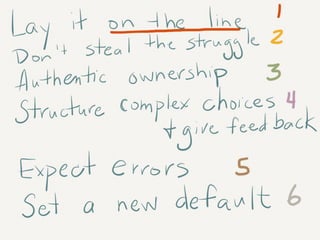 Lay it on the line 1
Don't steal the struggle 2
Authentic ownership 3
Structure complex choices 4
+ give feedback
Expect errors 5
Set a new default 6